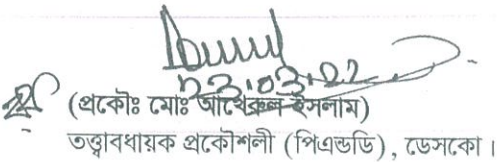 ২৩.০৩.২২
(প্রকৌঃ মোঃ আখেরুল ইসলাম)
তত্ত্বাবধায়ক প্রকৌশলী (পিএন্ডডি), ডেসকো।